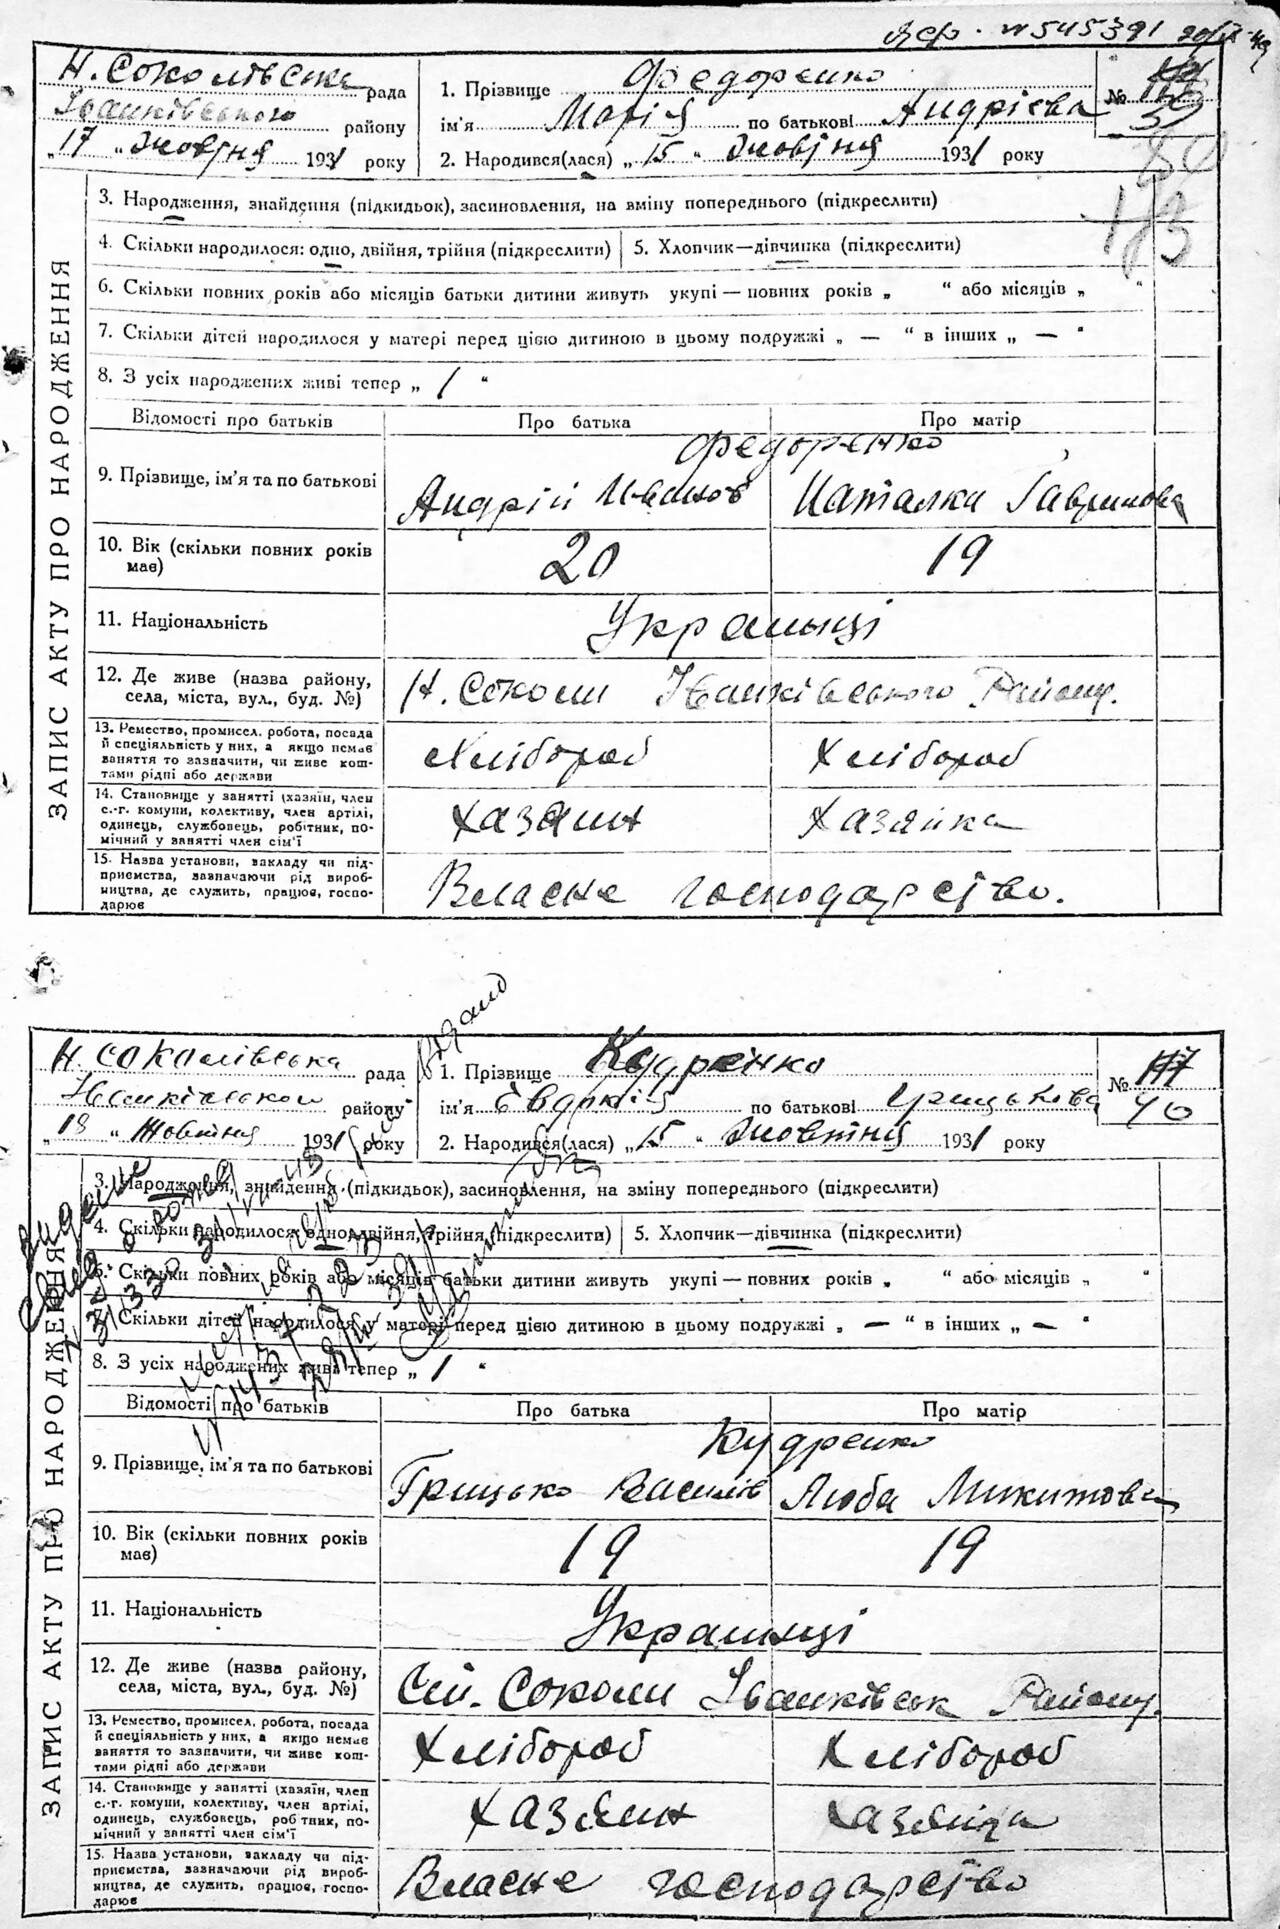 № 545391
Н. Соколівська рада
Іванківського району
„17 “ Жовтня 1931 року
1. Прізвище Федоренко
ім'я Марія по батькові Андрієва
2. Народився(лася) „ 15 “ Жовтня 1931 року
№ 39
173
ЗАПИС АКТУ ПРО НАРОДЖЕННЯ
3. Народження, знайдення (підкидьок), засиновлення, на зміну попереднього (підкреслити)
4. Скільки народилося: одно, двійня, трійня (підкреслити)
5. Хлопчик—дівчинка (підкреслити)
6. Скільки повних років або місяців батьки дитини живуть укупі — повних років „ “ або місяців „ “
7. Скільки дітей народилося у матері перед цією дитиною в цьому подружжі „ — “ в інших „ — “
8. З усіх народжених живі тепер „ 1 “
Відомості про батьків
Про батька
Про матір
9. Прізвище, ім'я та по батькові
Федоренко
Андрій Иванов
Наталка Гаврилова
10. Вік (скільки повних років має)
20
19
11. Національність
Украинці
12. Де живе (назва району, села, міста, вул., буд. №)
Н. Соколи Іванківського Району.
13. Ремество, промисел, робота, посада й спеціяльність у них, а якщо немає заняття то зазначити, чи живе коштами рідні або держави
Хлібороб
Хлібороб
14. Становище у занятті (хазяїн, член с.-г. комуни, колективу, член артілі, одинець, службовець, робітник, помічний у занятті член сім'ї
Хазяин
Хазяйка
15. Назва установи, закладу чи підприємства, зазначаючи рід виробництва, де служить, працює, господарює
Власне господарство.
Н. Соколівська рада
району
„18 “ Жовтня 1931 року
1. Прізвище Кудренко
ім'я Євдокія по батькові Грицькова
2. Народився(лася) „ 15 “ Жовтня 1931 року
№ 117
40
ЗАПИС АКТУ ПРО НАРОДЖЕННЯ
3. Народження, знайдення (підкидьок), засиновлення, на зміну попереднього (підкреслити)
4. Скільки народилося: одно, двійня, трійня (підкреслити)
5. Хлопчик—дівчинка (підкреслити)
6. Скільки повних років або місяців батьки дитини живуть укупі — повних років „ “ або місяців „ “
7. Скільки дітей народилося у матері перед цією дитиною в цьому подружжі „ — “ в інших „ — “
8. З усіх народжених живі тепер „ 1 “
Відомості про батьків
Про батька
Про матір
9. Прізвище, ім'я та по батькові
Кудренко
Грицько Василів
Люба Микитова
10. Вік (скільки повних років має)
19
19
11. Національність
Украинці
12. Де живе (назва району, села, міста, вул., буд. №)
Соколи Іванківськ Району.
13. Ремество, промисел, робота, посада й спеціяльність у них, а якщо немає заняття то зазначити, чи живе коштами рідні або держави
Хлібороб
Хлібороб
14. Становище у занятті (хазяїн, член с.-г. комуни, колективу, член артілі, одинець, службовець, робітник, помічний у занятті член сім'ї
Хазяин
Хазяйка
15. Назва установи, закладу чи підприємства, зазначаючи рід виробництва, де служить, працює, господарює
Власне господарство